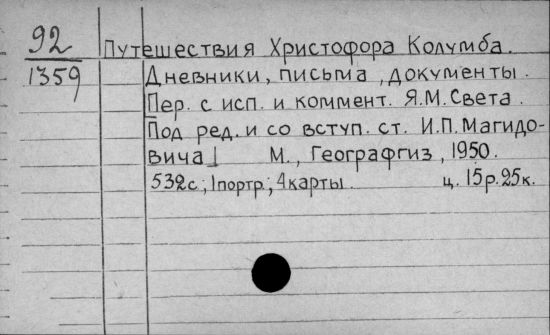 92 Путешествия Христофора Колумба.
1359 Дневники, письма, документы.
Пер. с исп. и коммент. Я.М. Света.
Под ред. и со вступ. ст. И.П. Магидо-
вича] М., Географгиз, 1950.
532с.; 1портр.; 4карты. ц. 15р.25к.